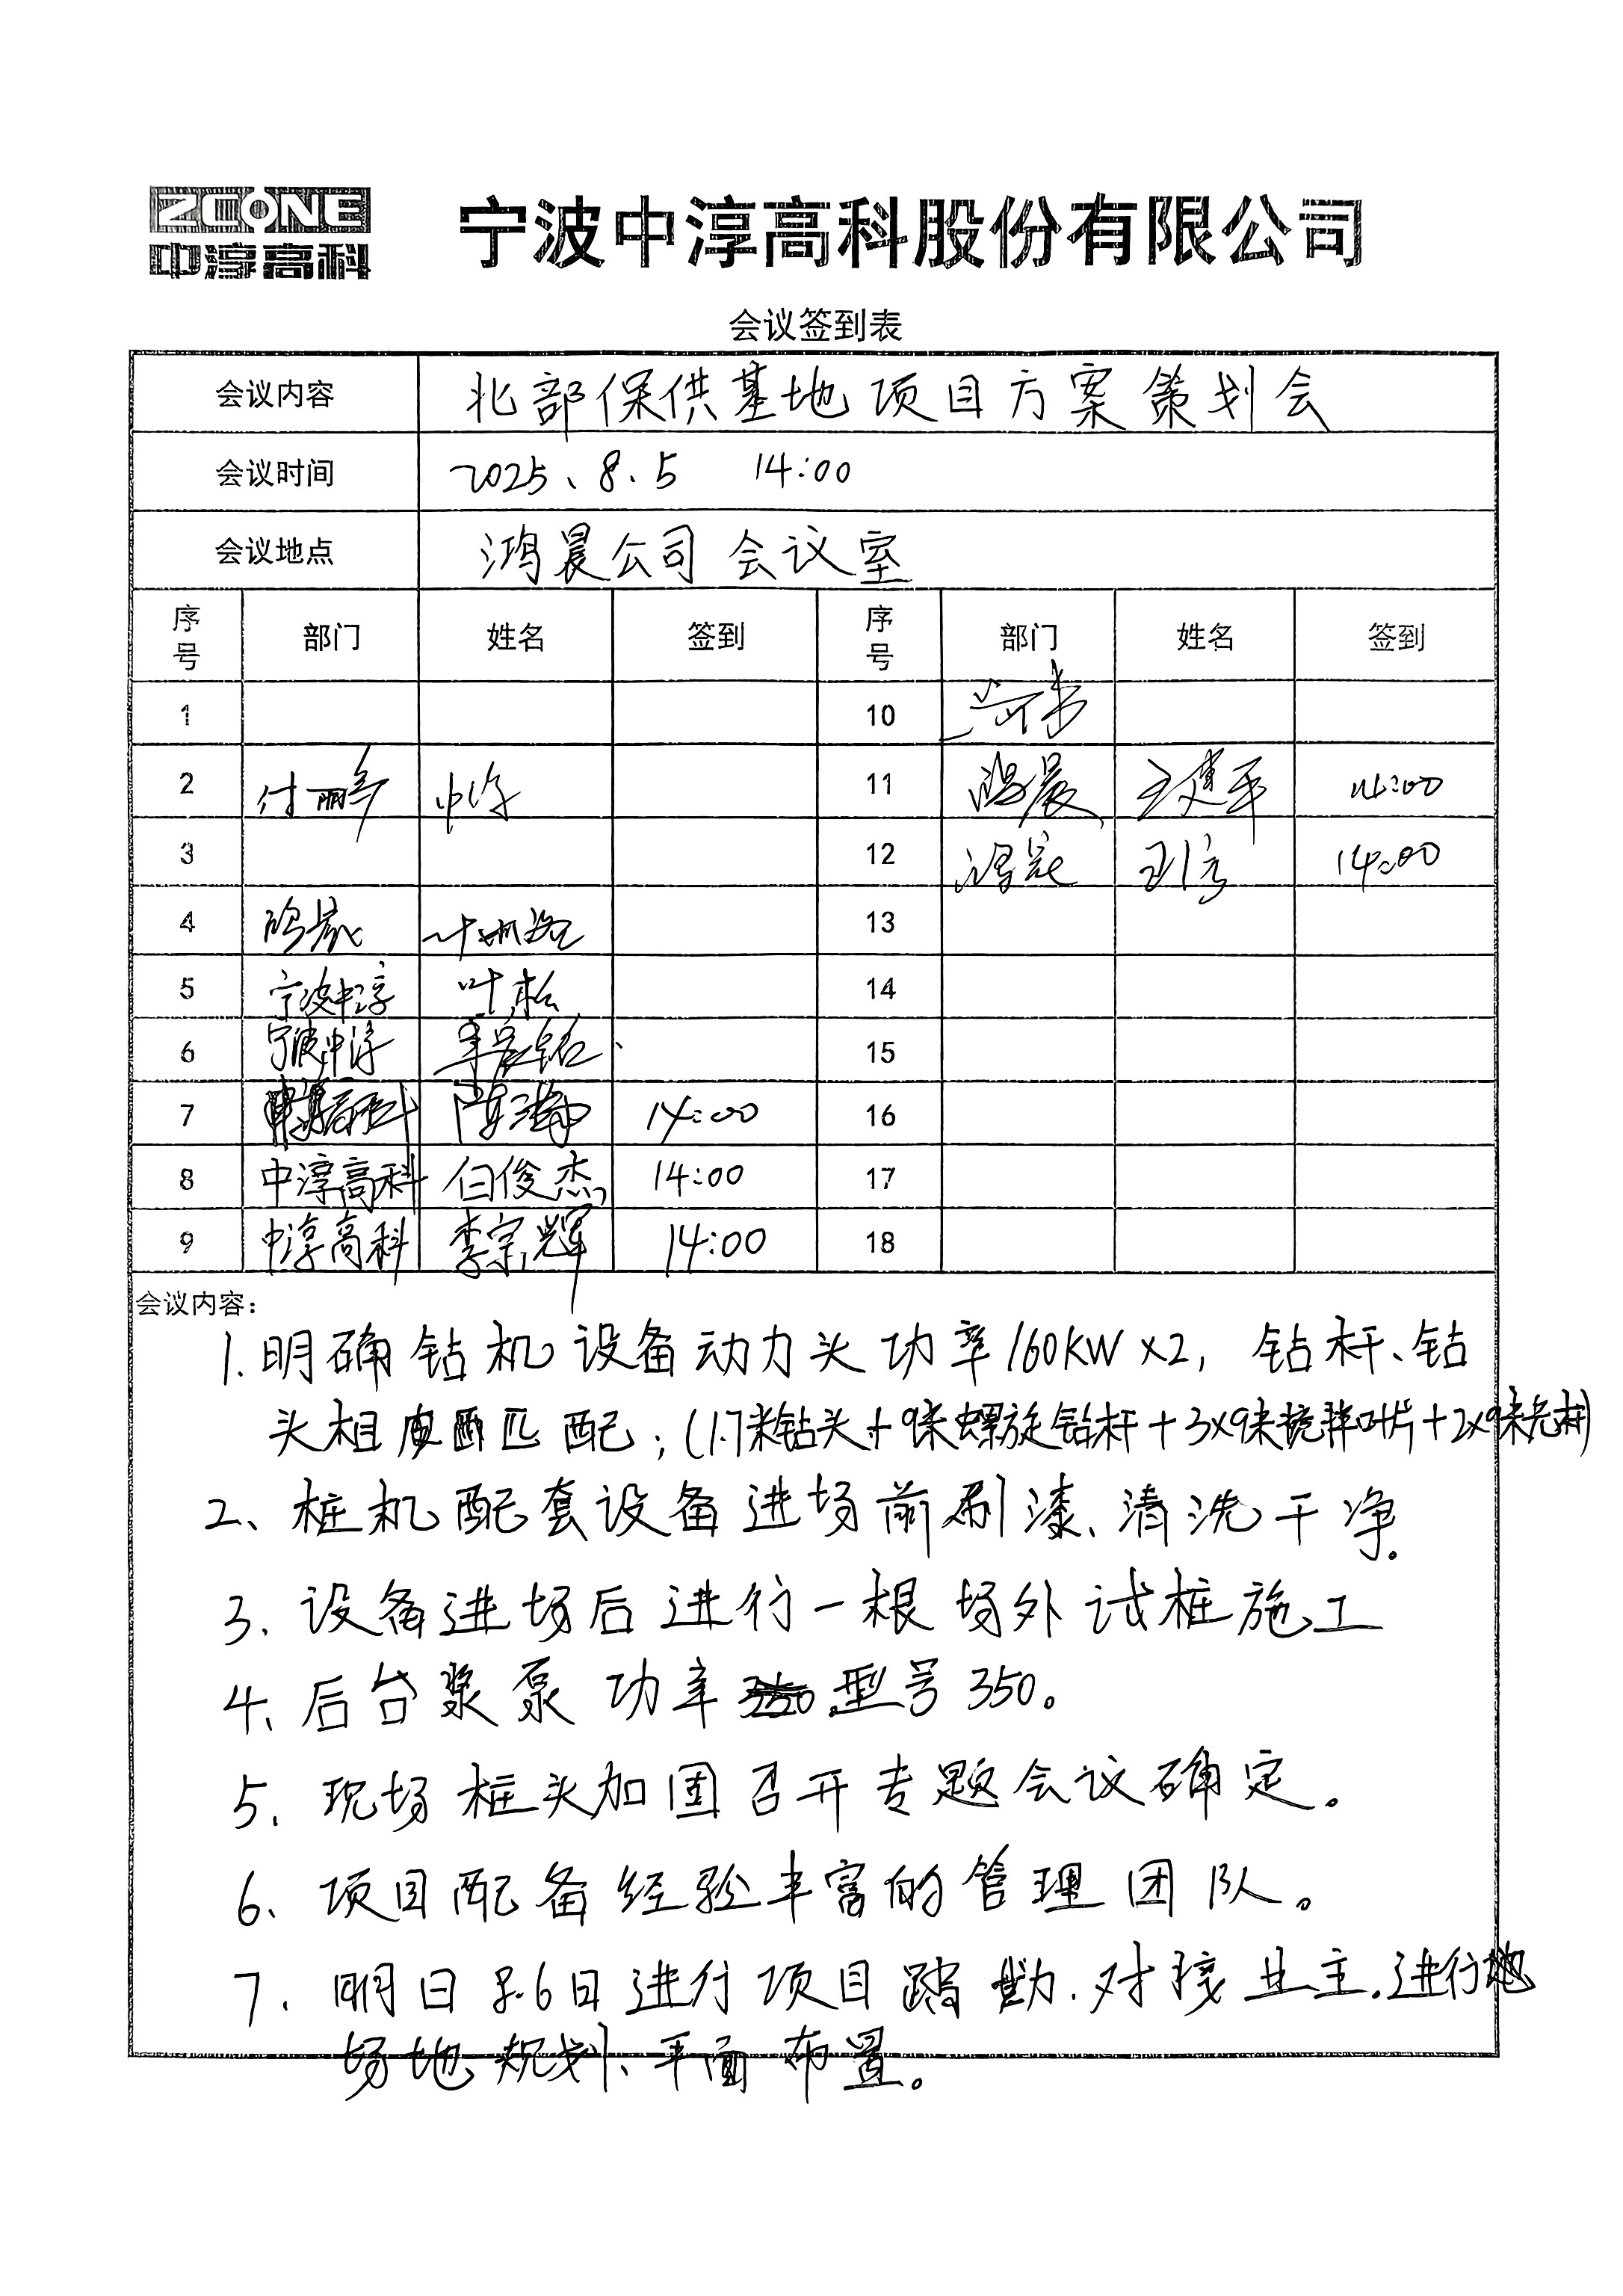 ZCONE
中淳高科
宁波中淳高科股份有限公司
会议签到表
会议内容 北部保供基地项目方案策划会
会议时间 2025、8、5 14:00
会议地点 鸿晨公司会议室
序号 部门 姓名 签到 序号 部门 姓名 签到
1 10
2 中淳 11 鸿晨 王建平 14:00
3 12 14:00
4 鸿晨 13
5 宁波中淳 叶松 14
6 宁波中淳 15
7 高科 14:00 16
8 中淳高科 白俊杰 14:00 17
9 中淳高科 李宗辉 14:00 18
会议内容：
1.明确钻机设备动力头功率160KW×2，钻杆、钻
头相匹配；(1.7米钻头+9米螺旋钻杆+3×9米搅拌叶片+2×9米光杆)
2、桩机配套设备进场前刷漆、清洗干净.
3、设备进场后进行一根场外试桩施工
4、后台浆泵功率型号350。
5、现场桩头加固召开专题会议确定。
6、项目配备经验丰富的管理团队。
7、明日8.6日进行项目踏勘.对接业主.进行
场地规划、平面布置。